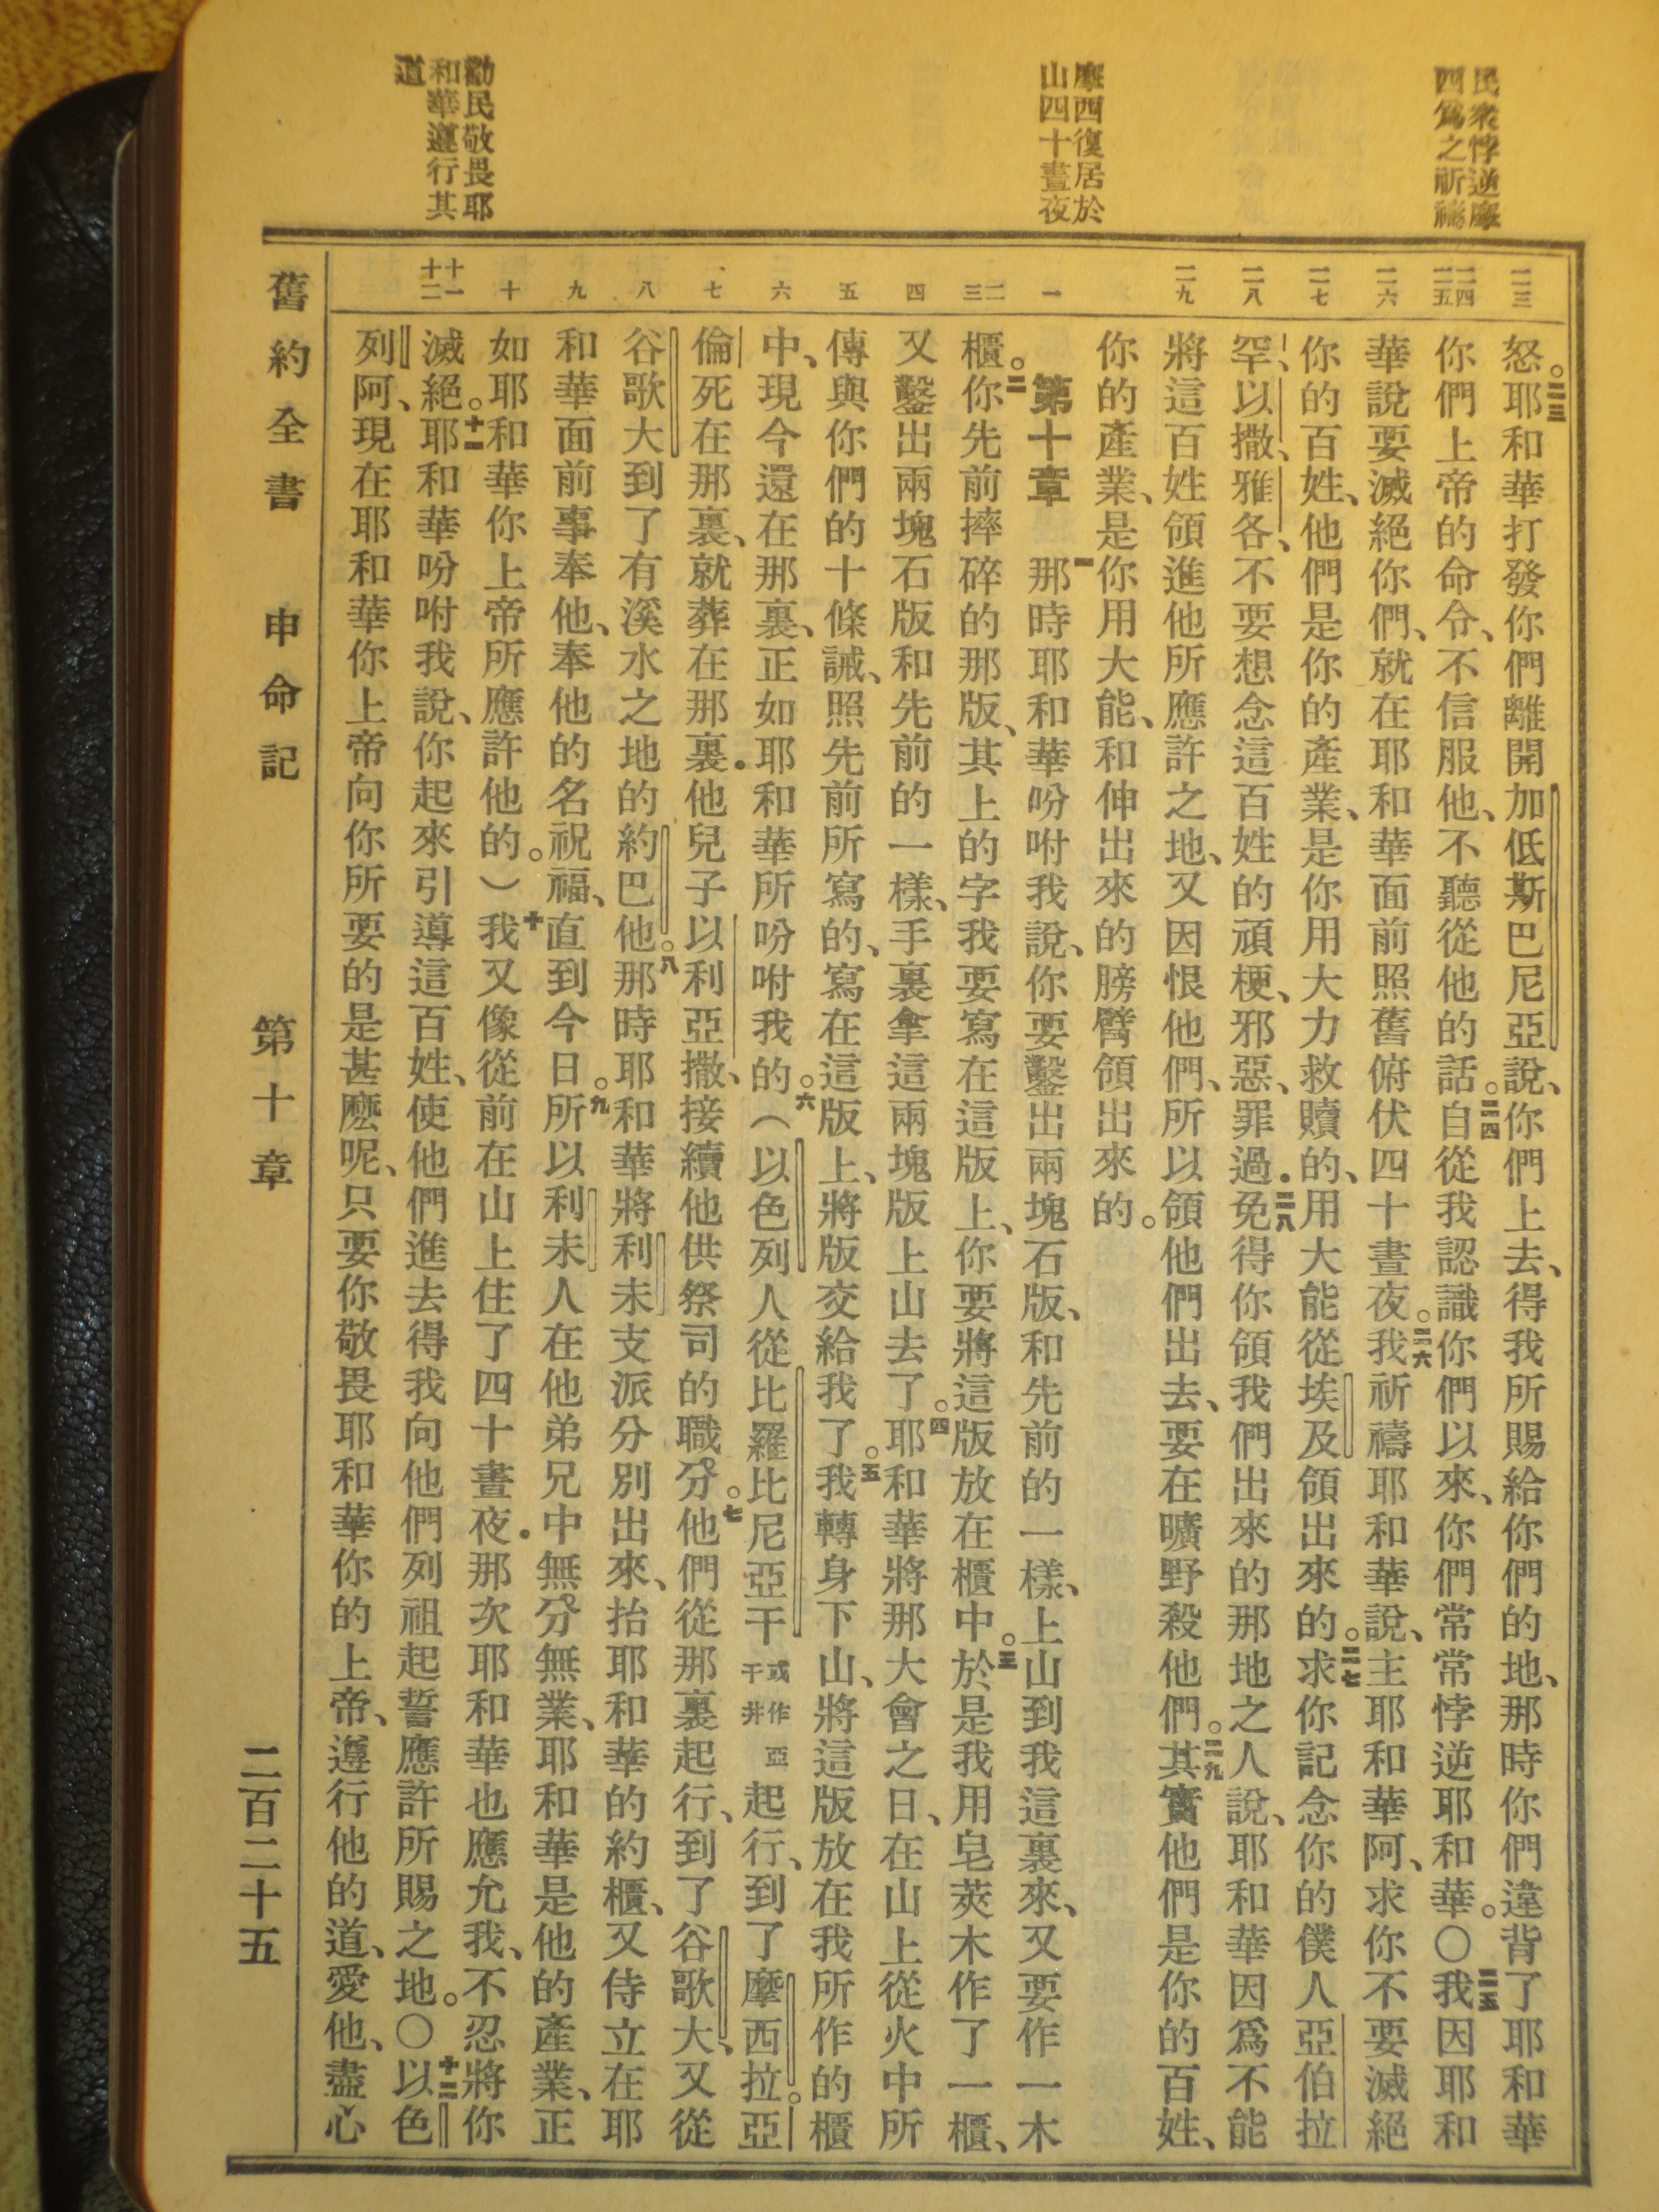 民衆悖逆摩
西爲之祈禱
摩西復居於
山四十晝夜
勸民敬畏耶
和華遵行其
道
二三
二四
二五
二六
二七
二八
二九
一
二
三
四
五
六
七
八
九
十
十一
十二
怒。二三耶和華打發你們離開加低斯巴尼亞說、你們上去、得我所賜給你們的地、那時你們違背了耶和華
你們上帝的命令、不信服他、不聽從他的話。二四自從我認識你們以來、你們常常悖逆耶和華。〇二五我因耶和
華說要滅絕你們、就在耶和華面前照舊俯伏四十晝夜。二六我祈禱耶和華說、主耶和華阿、求你不要滅絕
你的百姓、他們是你的產業、是你用大力救贖的、用大能從埃及領出來的。二七求你記念你的僕人亞伯拉
罕、以撒、雅各、不要想念這百姓的頑梗、邪惡、罪過．二八免得你領我們出來的那地之人說、耶和華因爲不能
將這百姓領進他所應許之地、又因恨他們、所以領他們出去、要在曠野殺他們。二九其實他們是你的百姓、
你的產業、是你用大能、和伸出來的膀臂領出來的。
第十章　一那時耶和華吩咐我說、你要鑿出兩塊石版、和先前的一樣、上山到我這裏來、又要作一木
櫃。二你先前摔碎的那版、其上的字我要寫在這版上、你要將這版放在櫃中。三於是我用皂莢木作了一櫃、
又鑿出兩塊石版和先前的一樣、手裏拿這兩塊版上山去了。四耶和華將那大會之日、在山上從火中所
傳與你們的十條誡、照先前所寫的、寫在這版上、將版交給我了。五我轉身下山、將這版放在我所作的櫃
中、現今還在那裏、正如耶和華所吩咐我的。六（以色列人從比羅比尼亞干或作亞干井起行、到了摩西拉。亞
倫死在那裏、就葬在那裏．他兒子以利亞撒、接續他供祭司的職分。七他們從那裏起行、到了谷歌大、又從
谷歌大到了有溪水之地的約巴他。八那時耶和華將利未支派分別出來、抬耶和華的約櫃、又侍立在耶
和華面前事奉他、奉他的名祝福、直到今日。九所以利未人在他弟兄中無分無業、耶和華是他的產業、正
如耶和華你上帝所應許他的。）十我又像從前在山上住了四十晝夜．那次耶和華也應允我、不忍將你
滅絕。十一耶和華吩咐我說、你起來引導這百姓、使他們進去得我向他們列祖起誓應許所賜之地。〇十二以色
列阿、現在耶和華你上帝向你所要的是甚麼呢、只要你敬畏耶和華你的上帝、遵行他的道、愛他、盡心
舊約全書　申命記　第十章　二百二十五